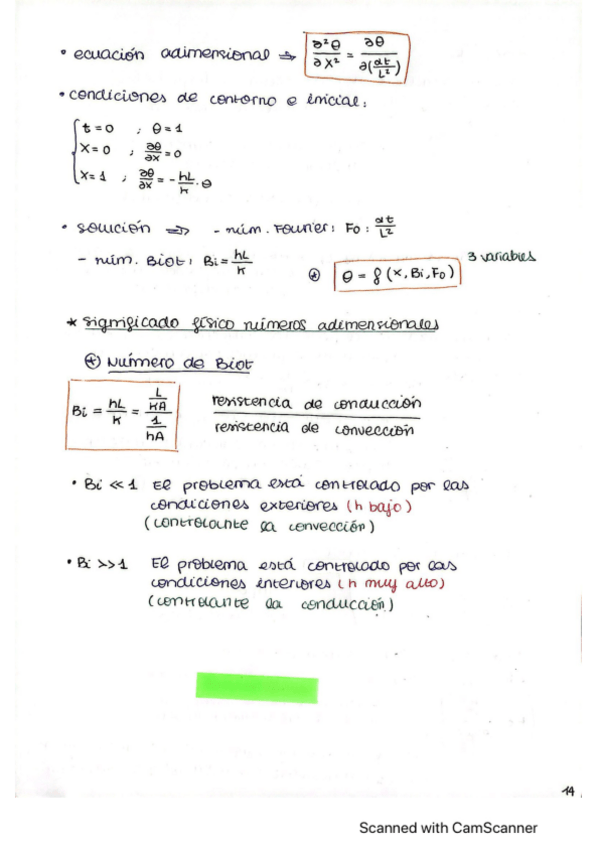 • ecuación adimensional ⇒ ∂²θ/∂X² = ∂θ/∂(αt/L²)
• condiciones de contorno e inicial:
t=0 ; θ=1
X=0 ; ∂θ/∂X=0
X=1 ; ∂θ/∂X = -hL/k · θ
• solución ⇒ - núm. Fourier: Fo: αt/L²
- núm. Biot: Bi = hL/k
⊛ θ = f (x, Bi, Fo) 3 variables
* significado físico números adimensionales
⊛ Número de Biot
Bi = hL/k = (L/kA)/(1/hA) resistencia de conducción / resistencia de convección
• Bi << 1 El problema está controlado por las
condiciones exteriores (h bajo)
(controlante la convección)
• Bi >> 1 El problema está controlado por las
condiciones interiores (h muy alto)
(controlante la conducción)
14
Scanned with CamScanner